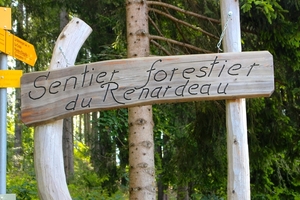 Sentier forestier
du Renardeau